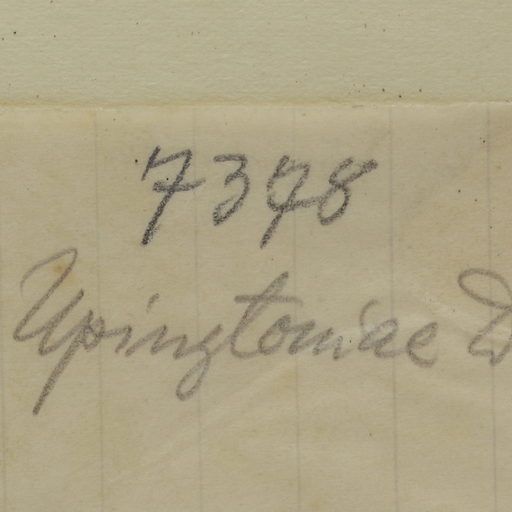 7378
Upingtoniae D